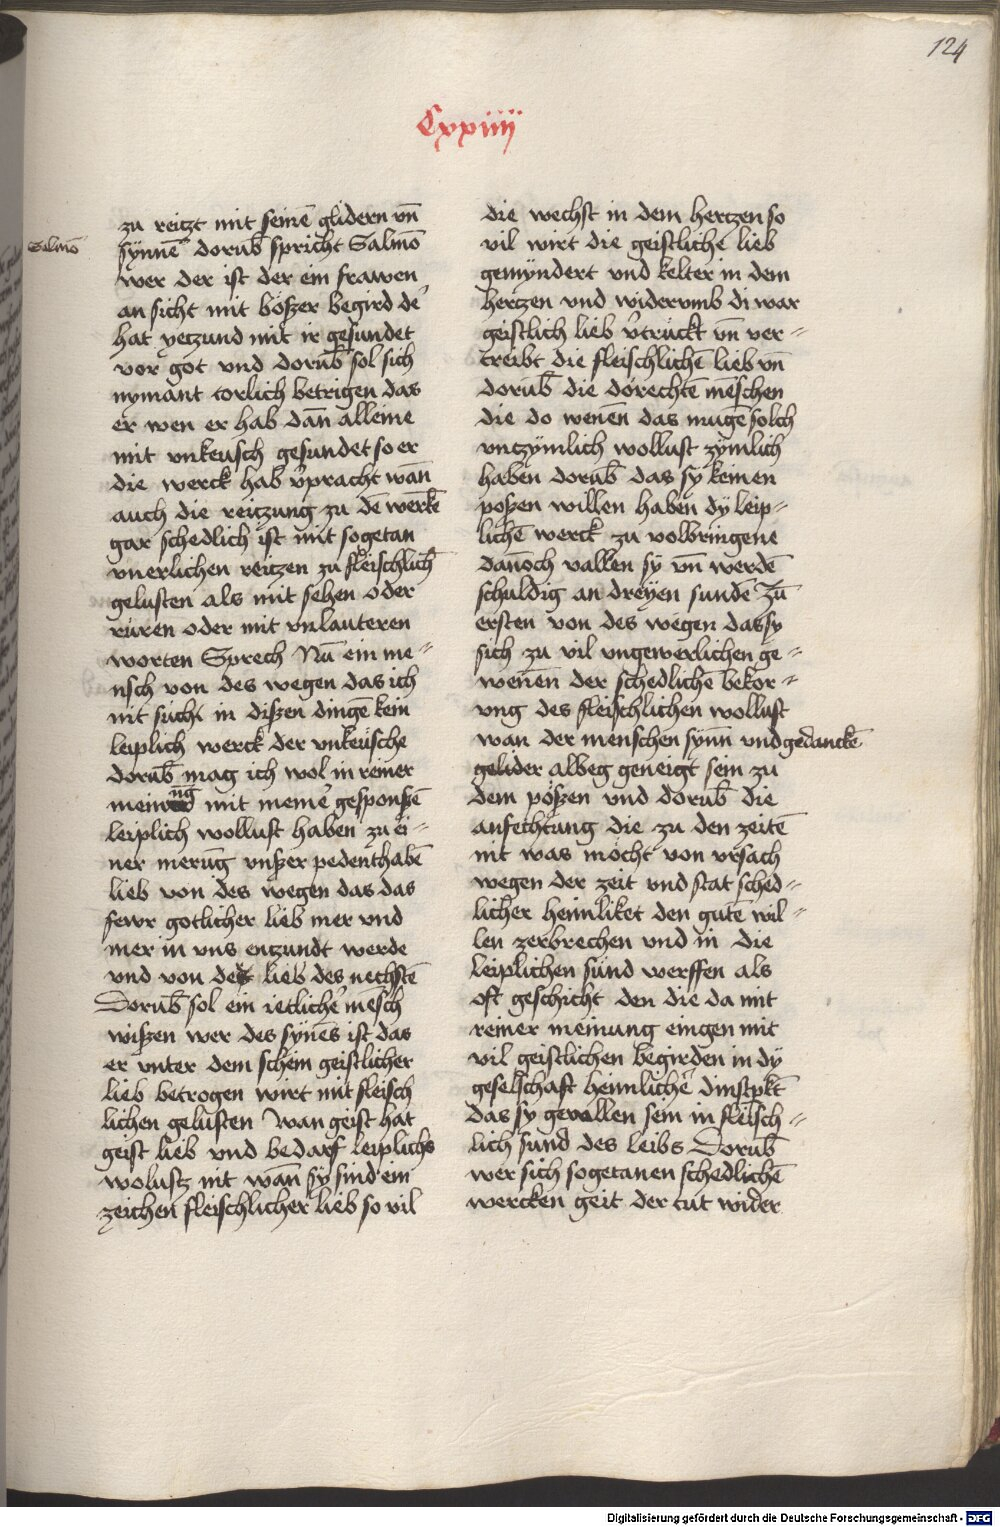 124
Cxxiiii
Salmō
zu reitzt mit seinē glidern vn̄
synnē dorūb spricht Salmō
wer der ist der ein frawen
an sicht mit bößer begird de᷑
hat yeczund mit ir gesundet
vor got vnd dorūb sol sich
nymant torlich betrigen das
er wen er hab dan̄ alleine
mit vnkeusch gesundet so er
die werck hab v᷑pracht wan̄
auch die reitzung zu dē werck̄
gar schedlich ist mit sogetan
vnerlichen reitzen zu fleischlich̄
gelusten als mit sehen oder
rüren oder mit vnlauteren
worten Sprech Nū ein me-
nsch von des wegen das ich
nit sücht in dißen dingē kein
leiplich werck der vnkeüsche
dorūb mag ich wol in reiner
meinūg mit meine᷑ gesponßē
leiplich wollust haben zu ei-
ner merūg vnßer pedenthabē
lieb von des wegen das das
fewr gotlicher lieb mer vnd
mer in vns enzundt werde
vnd von der lieb des nechstē
Dorūb sol ein ietliche᷑ mēsch
wißen wer des synēs ist das
er vnter dem schein geistlicher
lieb betrogen wirt mit fleisch
lichen gelüsten Wan geist hat
geist lieb vnd bedarf leiplichs
wolustz nit wan̄ sy sind ein
zeichen fleischlicher lieb so vil
die wechst in dem hertzen so
vil wirt die geistliche lieb
gemyndert vnd kelter in dem
hertzen vnd widerumb di war
geistlich lieb v᷑trückt vn̄ ver-
treibt die fleischlichē lieb vn̄
dorūb die dorechtē mēschen
die do wenēn das mugē solch
vntzymlich wollust zymlich
haben dorūb das sy keinen
poßen willen haben dy leip-
lichē werck zu volbringene
dan̄och vallen sy vn̄ werdē
schuldig an dreyen sundē Zū
ersten von des wegen das sy
sich zu vil vngewerlichen ge-
wenēn der schedlichē bekor-
ung des fleischlichen wollust
wan der menschen syn̄n vnd gedanckē
gelider albeg geneigt sein zu
dem pößen vnd dorūb die
anfechtung die zu den zeitē
nit was möcht von vrsach
wegen der zeit vnd stat sched-
licher heimliket den gutē wil-
len zerbrechen vnd in die
leiplichen sünd werffen als
oft geschicht den die da mit
reiner meinung eingen mit
vil geistlichen begirden in dy
geselschaft heimliche᷑ dinstpkt̄
das sy gevallen sein in fleisch-
lich sund des leibs Dorūb
wer sich sogetanen schedlichē
wercken geit der tut wider
Digitalisierung gefördert durch die Deutsche Forschungsgemeinschaft - DFG